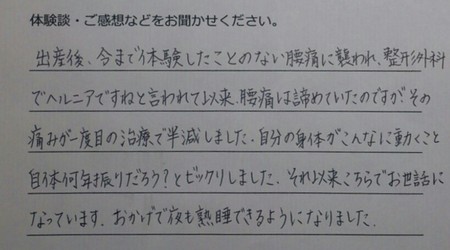 体験談・ご感想などをお聞かせください。
出産後、今まで体験したことのない腰痛に襲われ、整形外科
でヘルニアですねと言われて以来、腰痛は諦めていたのですが、その
痛みが一度目の治療で半減しました。自分の身体がこんなに動くこと
自体何年振りだろう?とビックリしました。それ以来こちらでお世話に
なっています。おかげで夜も熟睡できるようになりました。